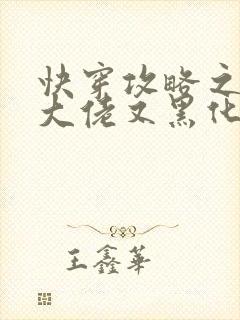 快穿攻略之
大佬又黑化
王鑫華